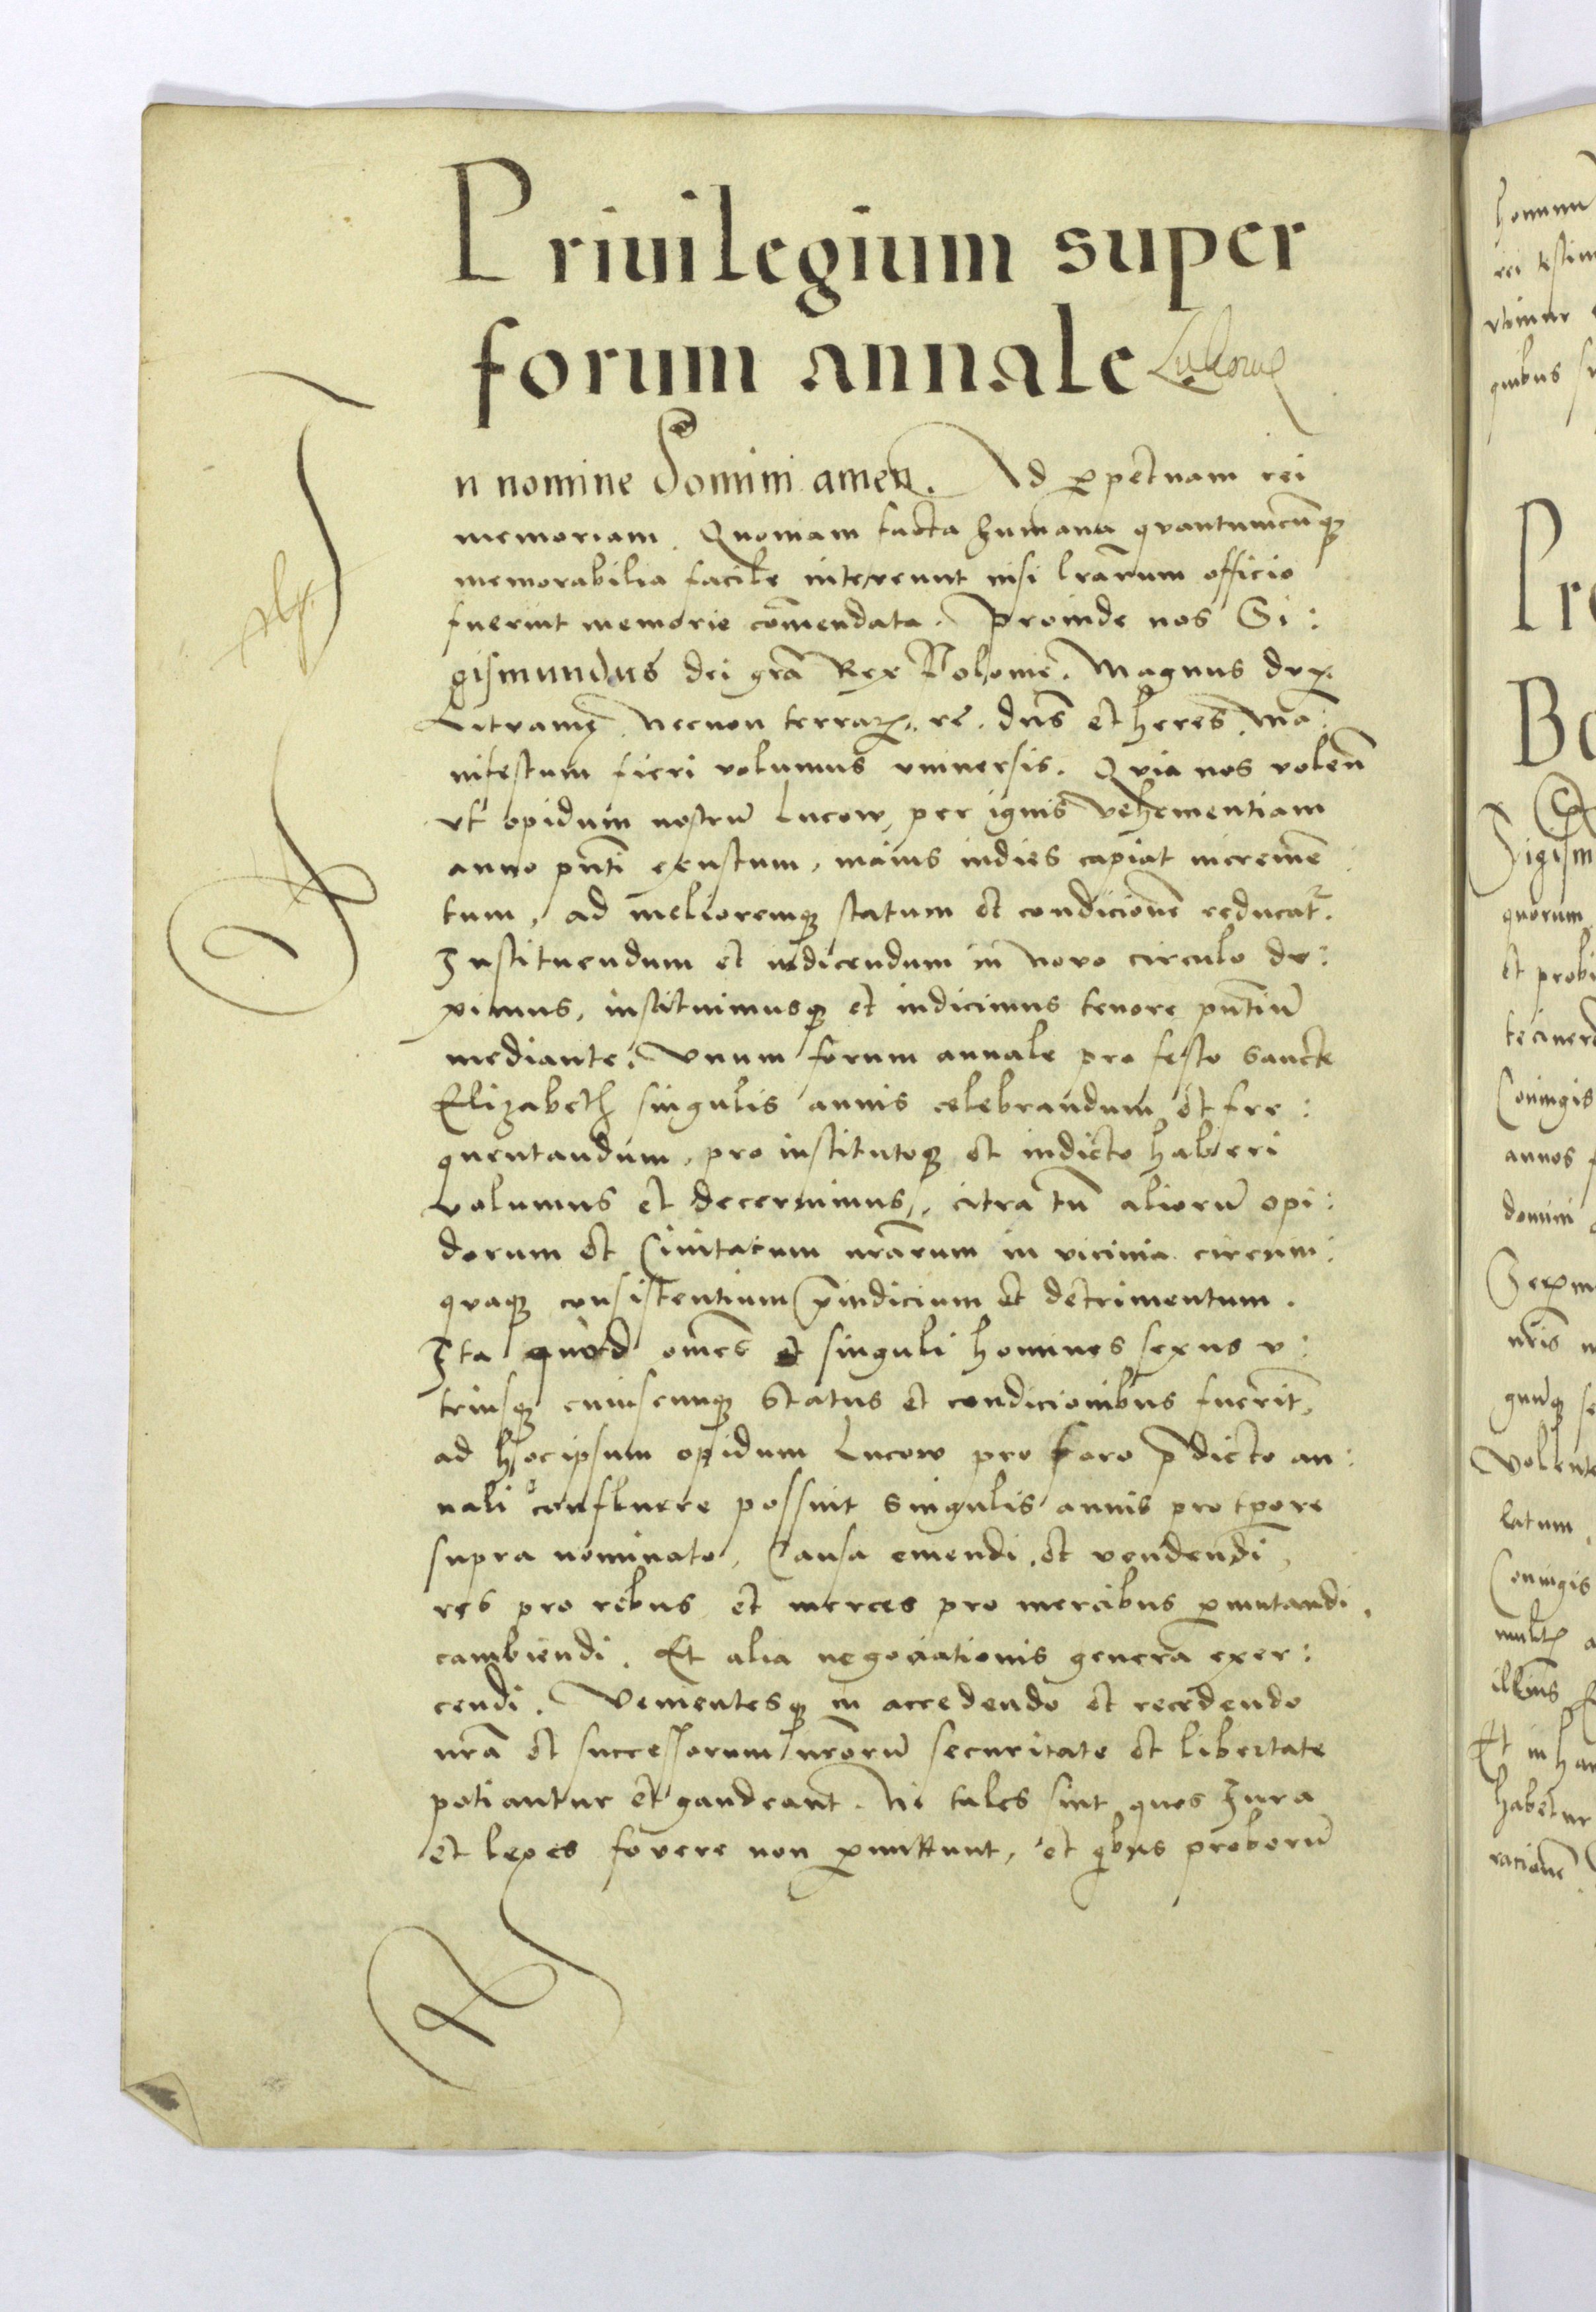 Priuilegium super
forum annale Lukow
In nomine Domini amen. Ad ꝑpetuam rei
memoriam. Quoniam facta humana quantumcunqꝫ
memorabilia facile intereunt nisi lrãrum officio
fuerint memorie com̃endata. Proinde nos Si:
gismundus dei grã Rex Polonie. Magnus dux
Lituanię. Necnon terraꝝ. rc̃. dns̃ et heres. Ma:
nifestum fieri volumus vniuersis. Quia nos volen̄
vt opidum nostrũ Lucow, per ignis vehementiam
anno pñti exustum, maius indies capiat incremẽ:
tum, ad melioremqꝫ statum et condicionẽ reducat̃.
Instituendum et indicendum in Novo circulo du:
ximus, instituimusqꝫ et indicimus tenore pñtiũ
mediante. Vnum forum annale pro festo Sancte
Elizabeth singulis annis celebrandum et fre:
quentandum, pro institutoqꝫ et indicto haberi
volumus et decernimus, citra tñ aliorũ opi:
dorum et Ciuitatum nrãrum in vicinia circum:
quaqꝫ consistentium p̃iudicium et detrimentum.
Ita quod om̃es et singuli homines sexus v:
triusqꝫ cuiuscunqꝫ status et condicionibus fuerit,
ad hoc ipsum opidum Lucow pro foro p̃dicto an:
nali confluere possint singulis annis pro tp̃ore
supra nominato, Causa emendi et vendendi,
res pro rebus et merces pro mercibus ꝑmutandi,
cambiendi. Et alia negociationis genera exer:
cendi. Venientesqꝫ in accedendo et recedendo
nrã et successorum nrõrũ securitate et libertate
potiantur et gaudeant. Ni tales sint quos Iura
et leges fovere non ꝑmittunt, et qͥbus proborũ
hominu
rei testim
quibus
Pr
Sigism
quorum
et probi
Conuigis
annos
domini
nris
Volente
latum
Conuigis
Et in ha
habetur
racione